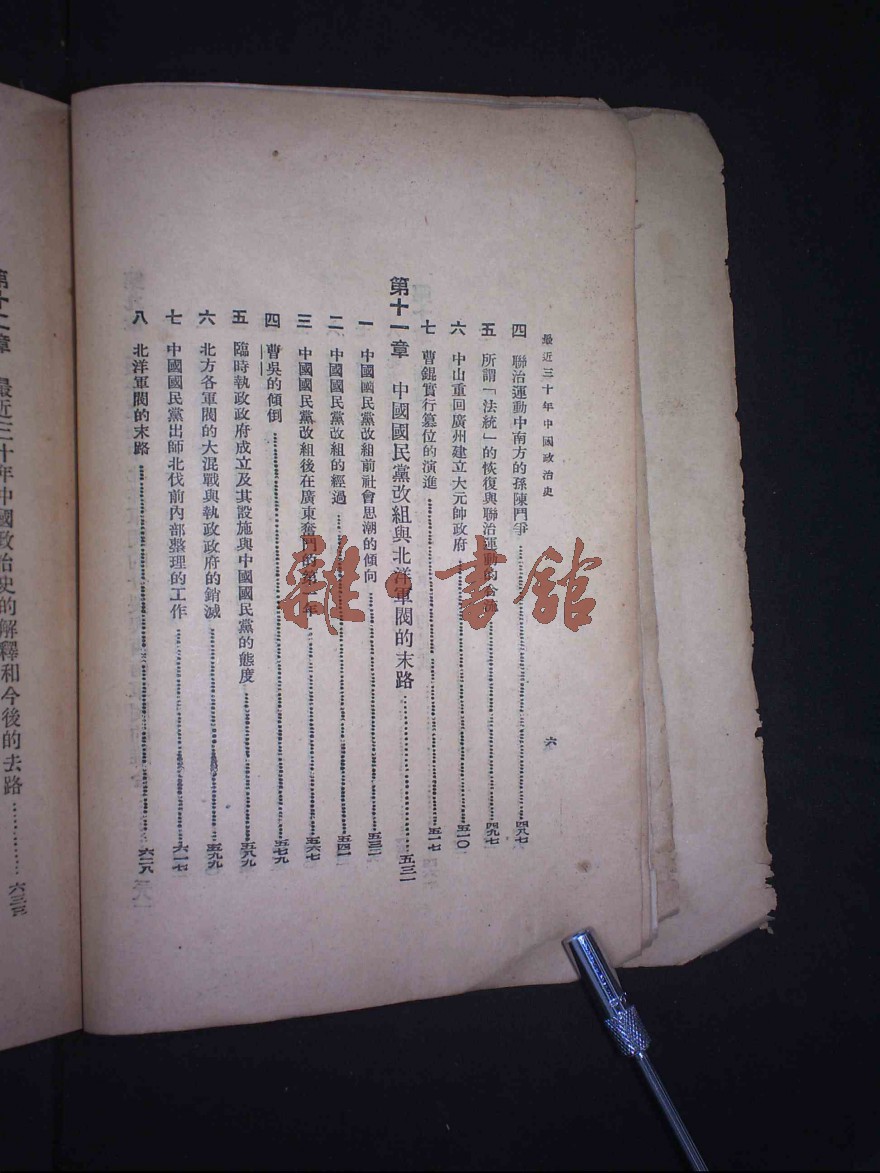 最近三十年中國政治史
六
四 聯治運動中南方的孫陳鬥爭……四八七
五 所謂「法統」的恢復與聯治運動的……四九七
六 中山重回廣州建立大元帥政府……五一〇
七 曹錕實行篡位的演進……五一七
第十一章 中國國民黨改組與北洋軍閥的末路……五三一
一 中國國民黨改組前社會思潮的傾向……五三二
二 中國國民黨改組的經過……五四一
三 中國國民黨改組後在廣東奮鬥的第一年……五六七
四 曹吳的傾倒……五七九
五 臨時執政政府成立及其設施與中國國民黨的態度……五八九
六 北方各軍閥的大混戰與執政政府的銷滅……五九九
七 中國國民黨出師北伐前內部整理的工作……六一七
八 北洋軍閥的末路……六二八
第十二章 最近三十年中國政治史的解釋和今後的去路……六三三
雜·書館